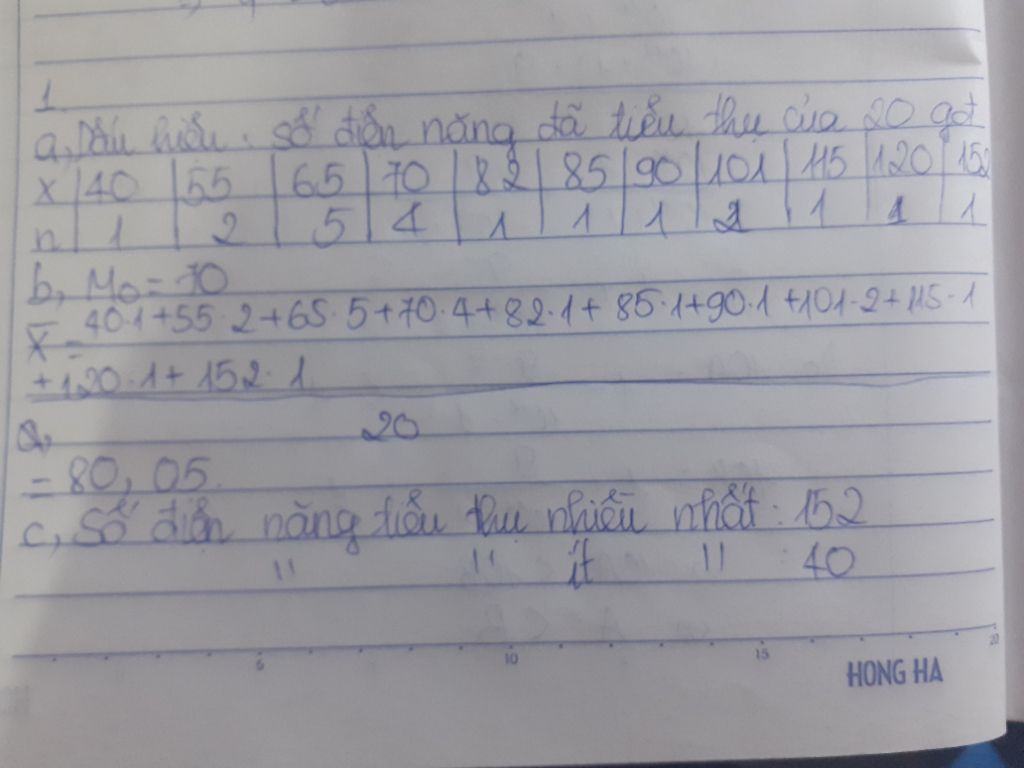 1
a, Dấu hiệu: Số điện năng đã tiêu thụ của 20 gđ
x | 40 | 55 | 65 | 70 | 82 | 85 | 90 | 101 | 115 | 120 | 152
n | 1 | 2 | 5 | 4 | 1 | 1 | 1 | 2 | 1 | 1 | 1
b, Mo = 70
X̄ = 40·1+55·2+65·5+70·4+82·1+85·1+90·1+101·2+115·1
+120·1+152·1
20
= 80,05
c, Số điện năng tiêu thụ nhiều nhất: 152
" " ít " : 40
5 10 15 20
HONG HA